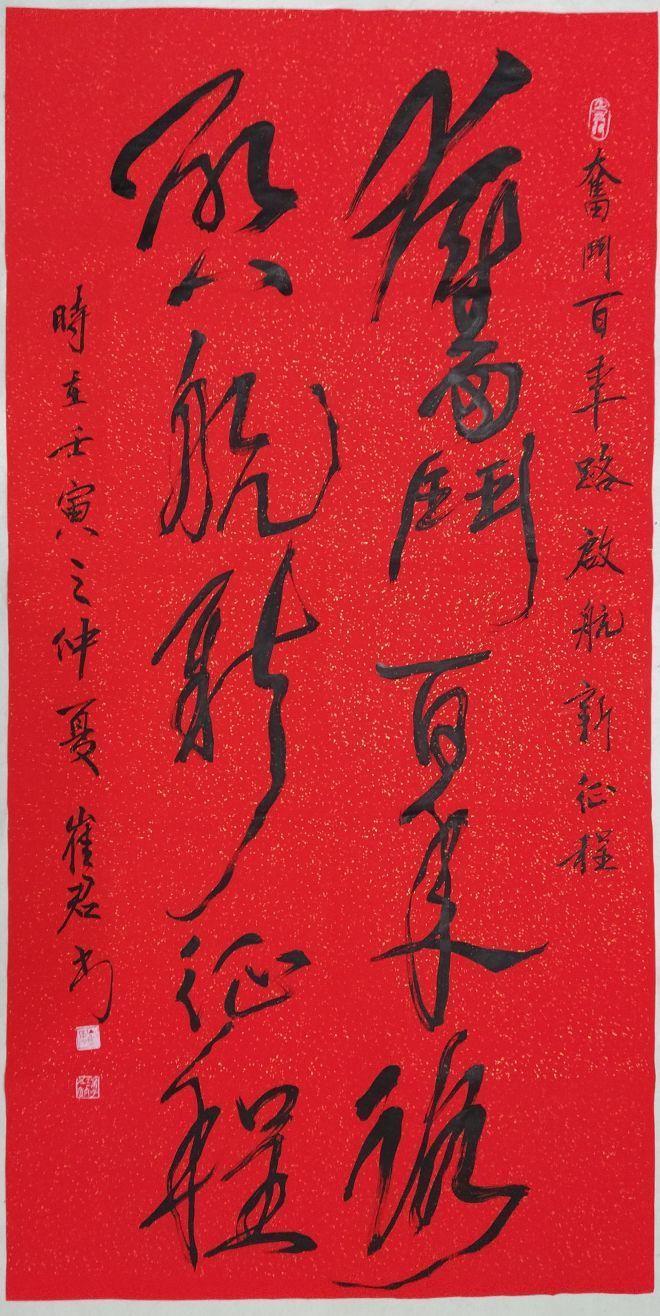 奮鬥百年路啟航新征程
奮鬥百年路
啟航新征程
時在壬寅之仲夏崔君书